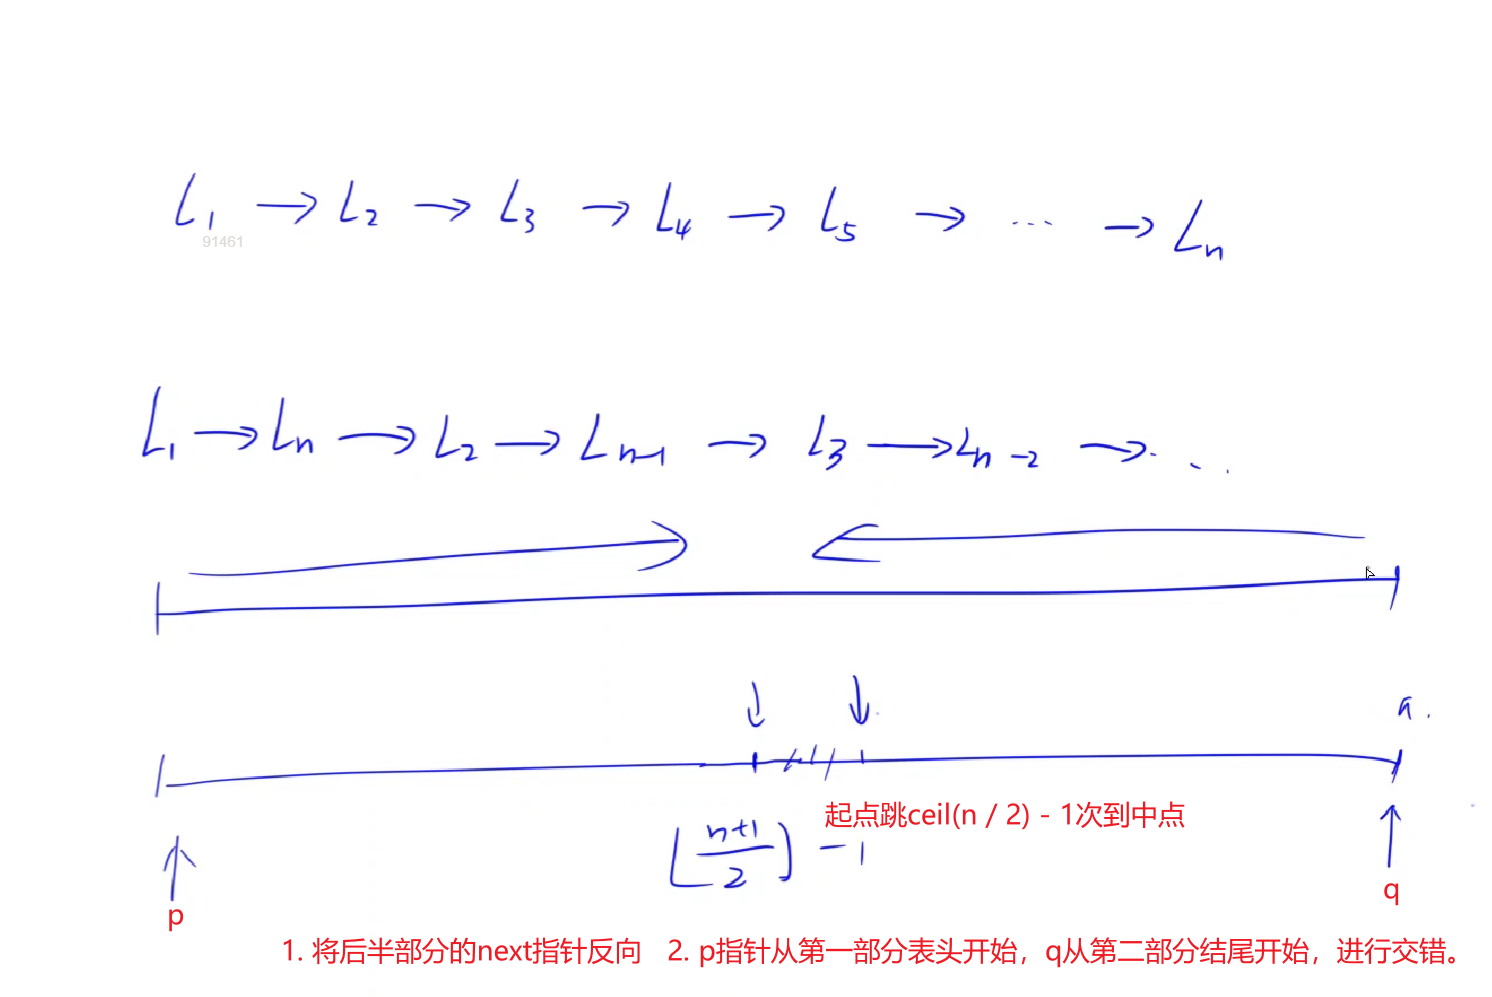 L₁ → L₂ → L₃ → L₄ → L₅ → ... → Lₙ
91461
L₁ → Lₙ → L₂ → Lₙ₋₁ → L₃ → Lₙ₋₂ → ...
起点跳ceil(n / 2) - 1次到中点
⌊(n+1)/2⌋ - 1
p
q
1. 将后半部分的next指针反向 2. p指针从第一部分表头开始，q从第二部分结尾开始，进行交错。